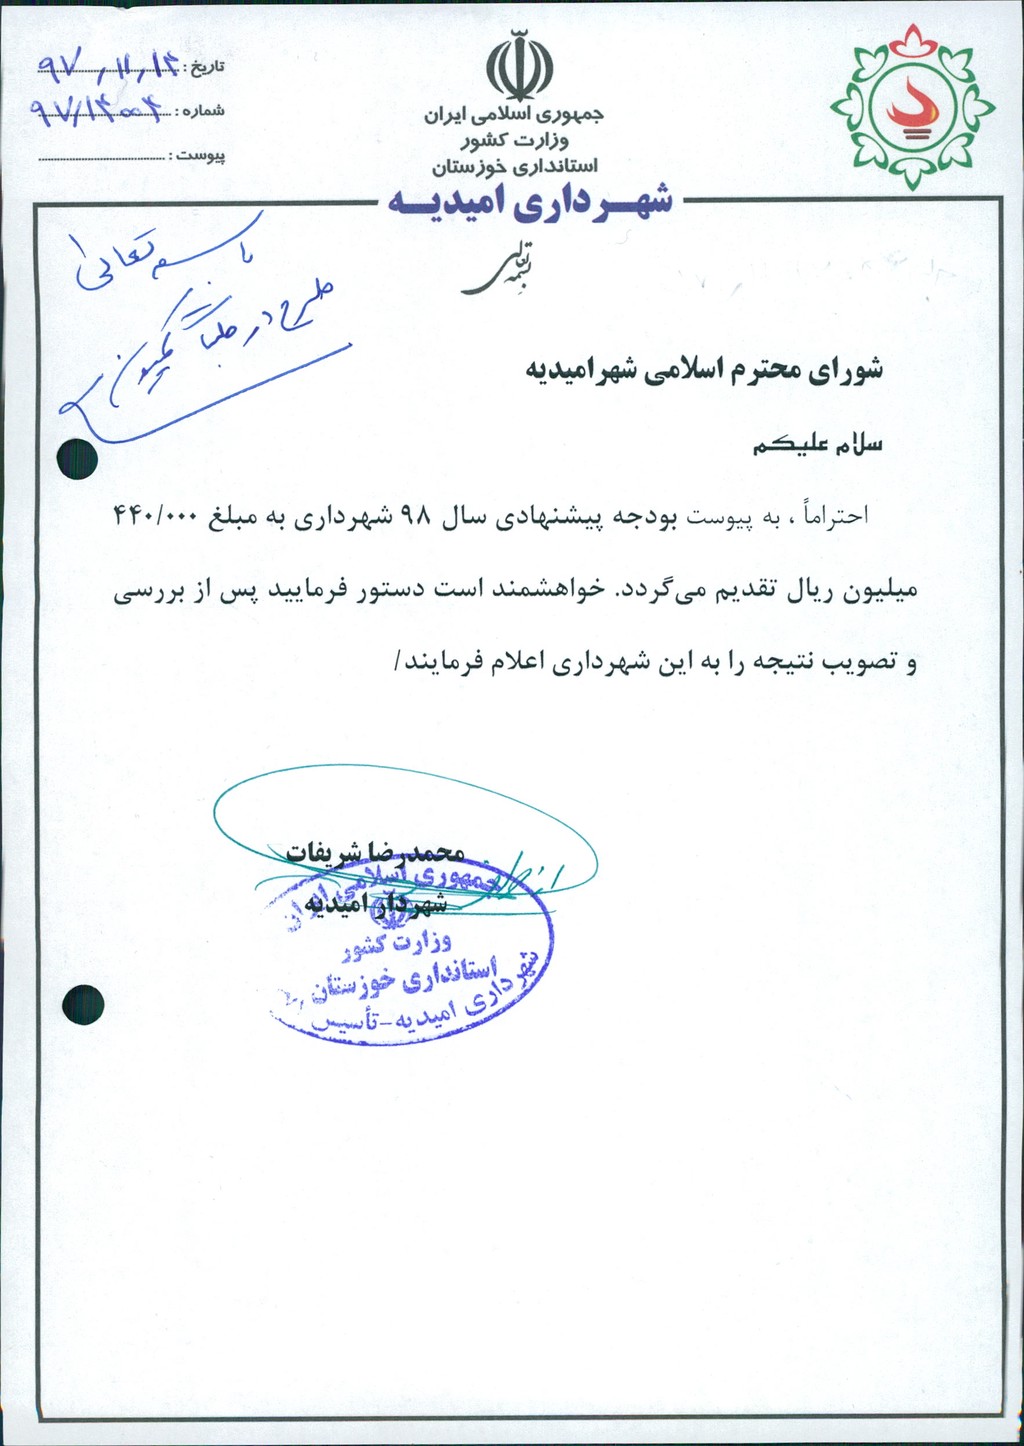 جمهوری اسلامی ایران
وزارت کشور
استانداری خوزستان
شهرداری امیدیه
تاریخ : ۹۷/۱۱/۱۴
شماره : ۹۷/۱۴۰۰۴
پیوست :
بسمه تعالی
باسمه تعالی
طرح در جلسات کمیسیون
شورای محترم اسلامی شهر امیدیه
سلام علیکم
احتراماً ، به پیوست بودجه پیشنهادی سال ۹۸ شهرداری به مبلغ ۴۴۰/۰۰۰
میلیون ریال تقدیم می‌گردد. خواهشمند است دستور فرمایید پس از بررسی
و تصویب نتیجه را به این شهرداری اعلام فرمایند/
محمدرضا شریفات
شهردار امیدیه
جمهوری اسلامی ایران
وزارت کشور
استانداری خوزستان
شهرداری امیدیه-تأسیس